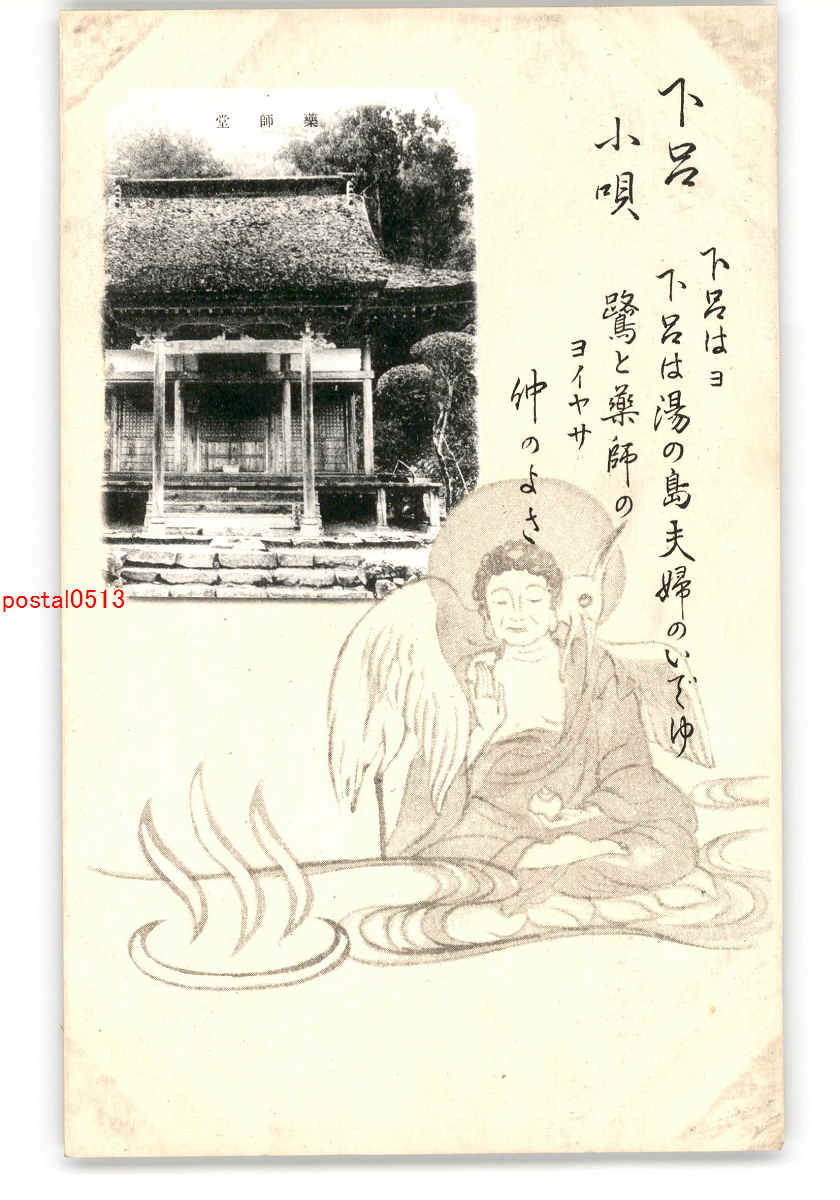 下呂
小唄
下呂はヨ
下呂は湯の島夫婦のいでゆ
鷺と薬師の
ヨイヤサ
仲のよさ
藥師堂
postal0513